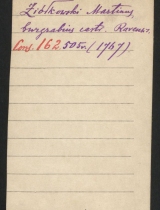 Ziółkowski Martinus
burgrabius castr. Ravens=
Cons. 162 505v. (1767)